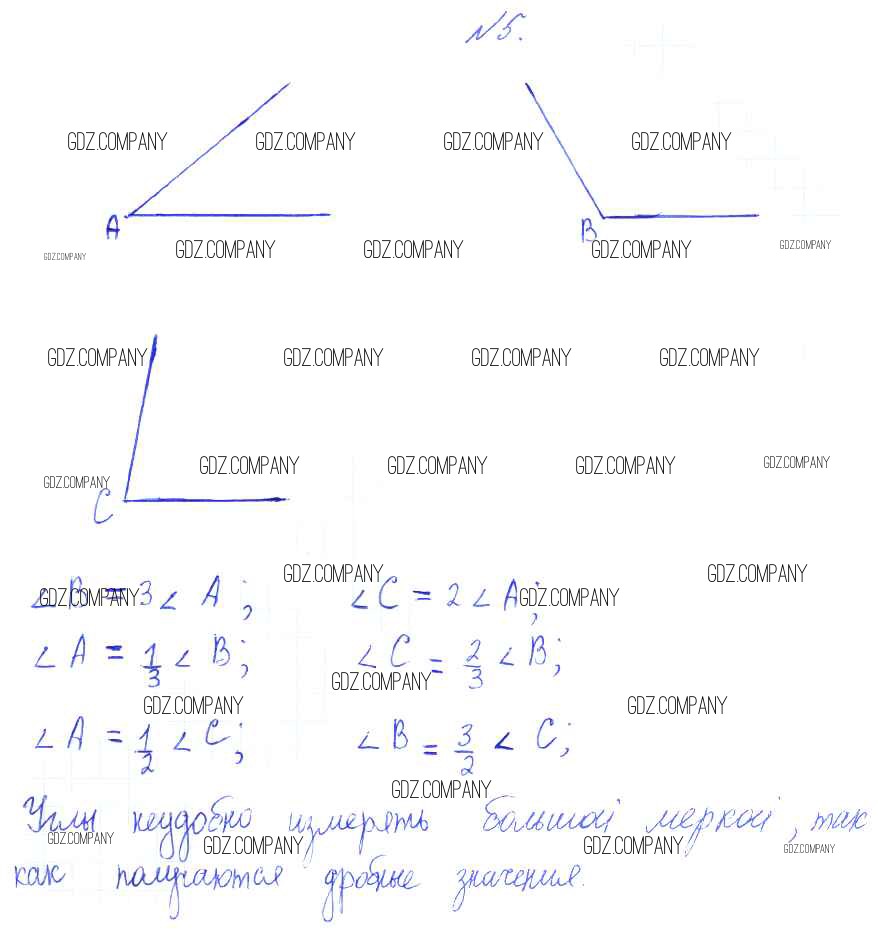 №5.
GDZ.COMPANY GDZ.COMPANY GDZ.COMPANY GDZ.COMPANY
A B
GDZ.COMPANY GDZ.COMPANY GDZ.COMPANY GDZ.COMPANY GDZ.COMPANY
GDZ.COMPANY GDZ.COMPANY GDZ.COMPANY GDZ.COMPANY
GDZ.COMPANY GDZ.COMPANY GDZ.COMPANY GDZ.COMPANY GDZ.COMPANY
C
GDZ.COMPANY GDZ.COMPANY
∠B = 3∠A; ∠C = 2∠A;
GDZ.COMPANY GDZ.COMPANY
∠A = 1/3 ∠B; ∠C = 2/3 ∠B;
GDZ.COMPANY
GDZ.COMPANY GDZ.COMPANY
∠A = 1/2 ∠C; ∠B = 3/2 ∠C;
GDZ.COMPANY
Углы неудобно измерять большой меркой, так
GDZ.COMPANY GDZ.COMPANY GDZ.COMPANY GDZ.COMPANY
как получаются дробные значения.